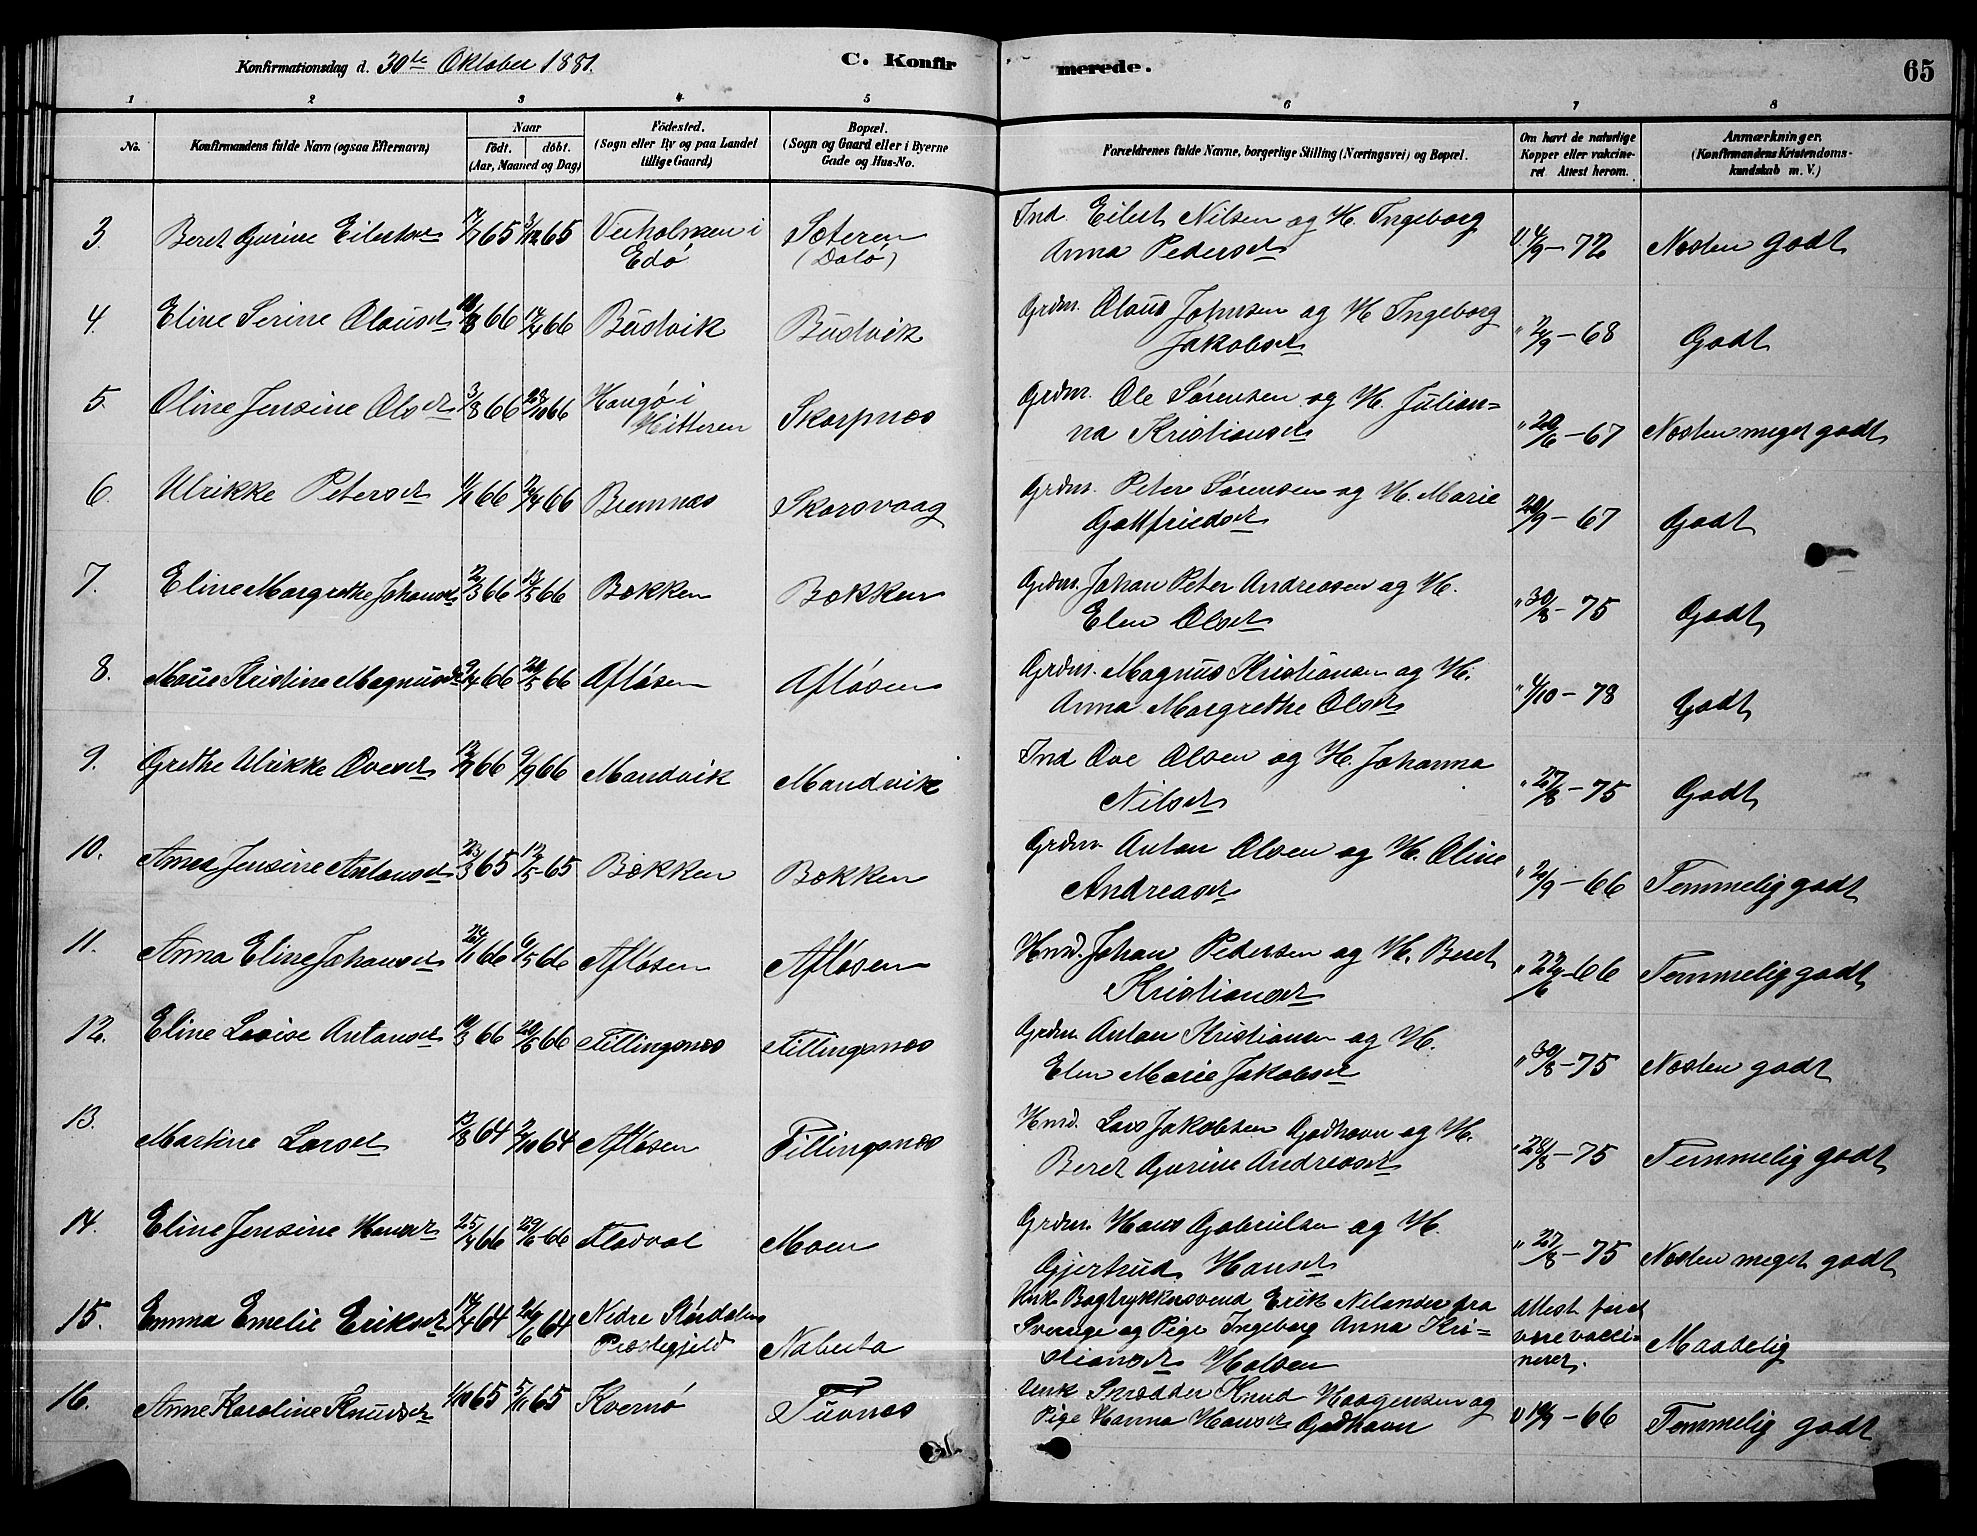 Konfirmationsdag d. 30te Oktober 1881. C. Konfirmerede. 65
1 2 3 4 5 6 7 8
No. Konfirmandens fulde Navn (ogsaa Efternavn) Naar født. døbt. (Aar, Maaned og Dag) Fødested. (Sogn eller By og paa Landet tillige Gaard) Bopæl. (Sogn og Gaard eller i Byerne Gade og Hus-No. Forældrenes fulde Navne, borgerlige Stilling (Næringsvei) og Bopæl. Om havt de naturlige Kopper eller vakcineret. Attest herom. Anmærkninger. (Konfirmandens Kristendomskundskab m. V.)
3. Beret Gurine Eilertsdt 65 65 Veiholmen i Edø Sæteren (Dalø) Ind. Eilert Nilsen og H. Ingeborg
Anna Pedersdt 4/9-72 Næsten Godt
4. Eline Serine Olausdt 66 66 Bustvik Bustvik Grdm. Olaus Johnsen og H. Ingeborg
Jakobsdt 68 Godt
5. Oline Jensine Olsdt 3/3 66 23/10 66 Haugø i Hitteren Skarpnæs Grdm. Ole Sørensen og H. Julian=
na Kristiansdt " 20/6-67 Næsten meget godt
6. Ulrikke Petersdt 66 66 Bremnæs Skarsvaag Grdm. Peter Sørensen og H. Marie
Gottfriedsdt 67 Godt
7. Eline Margrethe Johansdt 2/3 66 13/5 66 Bækken Bækken Grdm. Johan Peter Andreasen og H.
Elen Olsdt " 30/8-75 Godt
8. Marie Kristine Magnusdt 66 20/5 66 Afløsen Afløsen Grdm. Magnus Kristiansen og H.
Anna Margrethe Olsdt " 4/10-78 Godt
9. Grethe Ulrikke Ovesdt 66 9/9 66 Mandvik Mandvik Ind Ove Olsen og H. Johanna
Nilsdt " 27/8-75 Godt
10. Anna Jensine Antonsdt 23/3 65 12/5-65 Bækken Bækken Grdm. Anton Olsen og H. Oline
Andreasdt 66 Temmelig godt
11. Anna Eline Johansdt 66 6/5 66 Afløsen Afløsen Hmd. Johan Pedersen og H. Beret
Kristiansdt " 22/6-66 Temmelig godt
12. Eline Lovise Antonsdt 66 20/5 66 Fillingsnæs Fillingsnæs Grdm Anton Kristiansen og H.
Elen Marie Jakobsdt " 30/8-75 Næsten godt
13. Martine Larsdt 64 64 Afløsen Fillingsnæs Hmd. Lars Jakobsen Godhavn og H.
Beret Gurine Andreasdt " 28/8-75 Temmelig godt
14. Eline Jensine Hansdt 25/4 66 29/6-66 Fladval Moen Grdm. Hans Gabrielsen og H.
Gjertrud Hansdt " 27/8-75 Næsten meget godt
15. Emma Emelie Eriksdt 64 64 Nedre Størdalens Præstegjeld Nabeita Unk Bogtrykkersvend Erik Nelander fra
Sverige og Pige Ingeborg Anna Kri=
stiansdt Holsen Attest for at være vacci=
neret. Maadelig
16. Anne Karoline Knudsdt 65 65 Kvernø Tuvnæs Unk Skrædder Knud Haagensen og
Pige Hanna Hansdt Godhavn 66 Temmelig godt